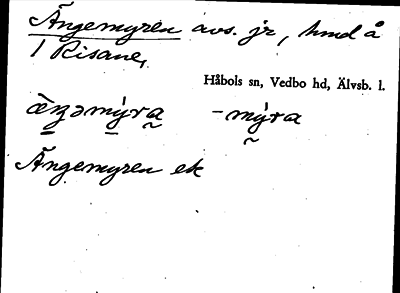 Ängemyren avs. jr, hmd å
1 Risane,
Håbols sn, Vedbo hd, Älvsb. l.
æ̀ŋəmýra -mýra
Ängemyren ek